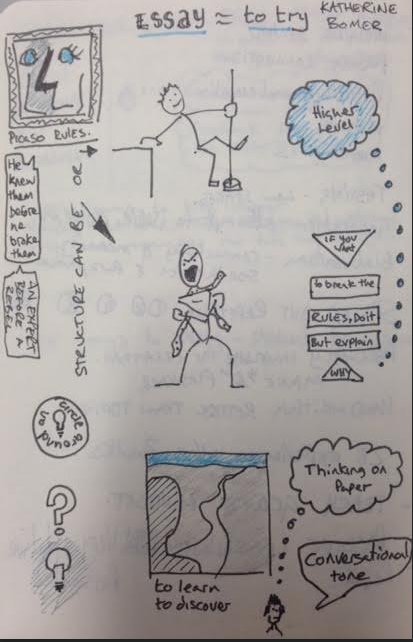 ESSAY = to try
KATHERINE
BOMER
Picaso Rules.
He
knew
them
before
he
broke
them
AN EXPERT
BEFORE A
REBEL
STRUCTURE CAN BE OR
Higher
Level
IF YOU
WANT
to break the
RULES, Do it
But explain
WHY
circle
around
an
?
to learn
to discover
Thinking on
Paper
Conversational
tone